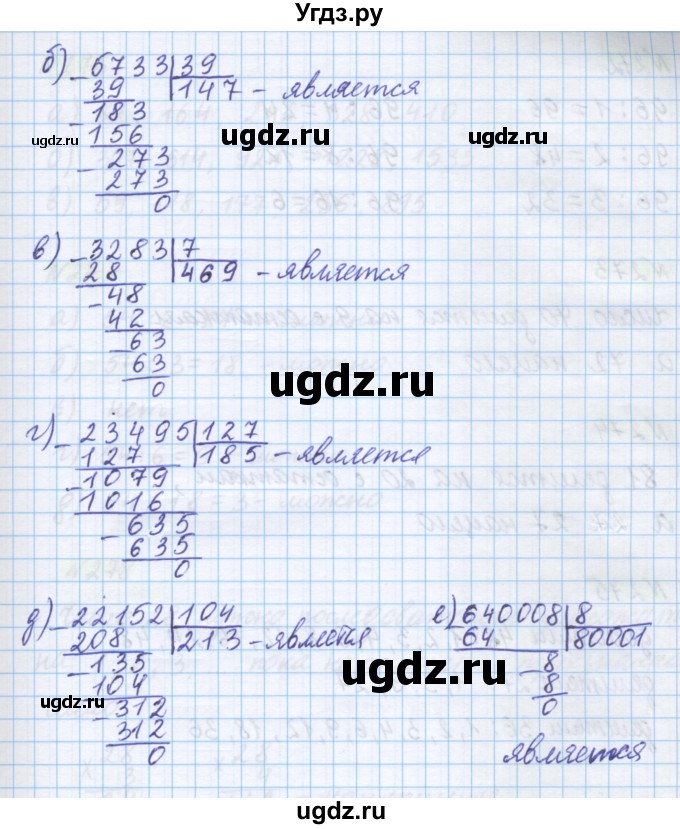 Угдз.ру
б) - 6733 | 39
39 | 147 - является
- 183
156
- 273
273
0
в) - 3283 | 7
28 | 469 - является
- 48
42
- 63
63
0
г) - 23495 | 127
127 | 185 - является
- 1079
1016
- 635
635
0
д) - 22152 | 104
208 | 213 - является
- 135
104
- 312
312
0
е) 640008 | 8
64 | 80001
- 8
8
0
является
ugdz.ru
ugdz.ru
ugdz.ru
ugdz.ru
ugdz.ru
ugdz.ru
ugdz.ru
ugdz.ru
ugdz.ru